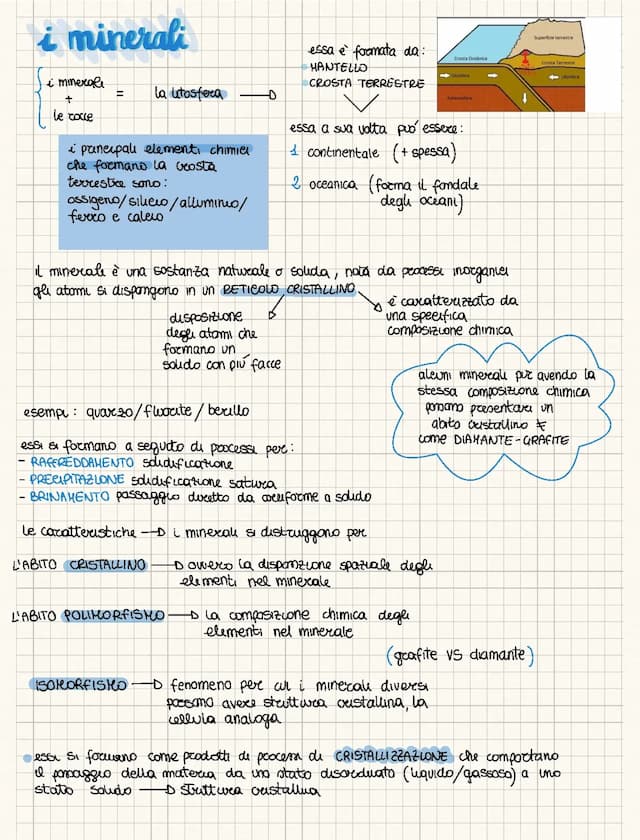 i minerali
i minerali
+
le rocce
= la litosfera
essa è formata da:
MANTELLO
CROSTA TERRESTRE
Superficie terrestre
Crosta Oceanica
Crosta Terrestre
Litosfera
Litosfera
Astenosfera
essa a sua volta può essere:
1 continentale (+ spessa)
2 oceanica (forma il fondale
degli oceani)
i principali elementi chimici
che formano la crosta
terrestre sono:
ossigeno/silicio/alluminio/
ferro e calcio
il minerale è una sostanza naturale o solida, nata da processi inorganici
gli atomi si dispongono in un RETICOLO CRISTALLINO
disposizione
degli atomi che
formano un
solido con più facce
è caratterizzato da
una specifica
composizione chimica
alcuni minerali pur avendo la
stessa composizione chimica
possono presentare un
abito cristallino ≠
come DIAMANTE-GRAFITE
esempi: quarzo/fluorite/berillo
essi si formano a seguito di processi per:
- RAFFREDDAMENTO solidificazione
- PRECIPITAZIONE solidificazione satura
- BRINAMENTO passaggio diretto da aeriforme a solido
le caratteristiche → i minerali si distruggono per
L'ABITO CRISTALLINO → ovvero la disposizione spaziale degli
elementi nel minerale
L'ABITO POLIMORFISMO → la composizione chimica degli
elementi nel minerale
(grafite VS diamante)
ISOMORFISMO → fenomeno per cui i minerali diversi
possono avere struttura cristallina, la
cellula analoga
essi si formano come prodotti di processi di CRISTALLIZZAZIONE che comportano
il passaggio della materia da uno stato disordinato (liquido/gassoso) a uno
stato solido → struttura cristallina